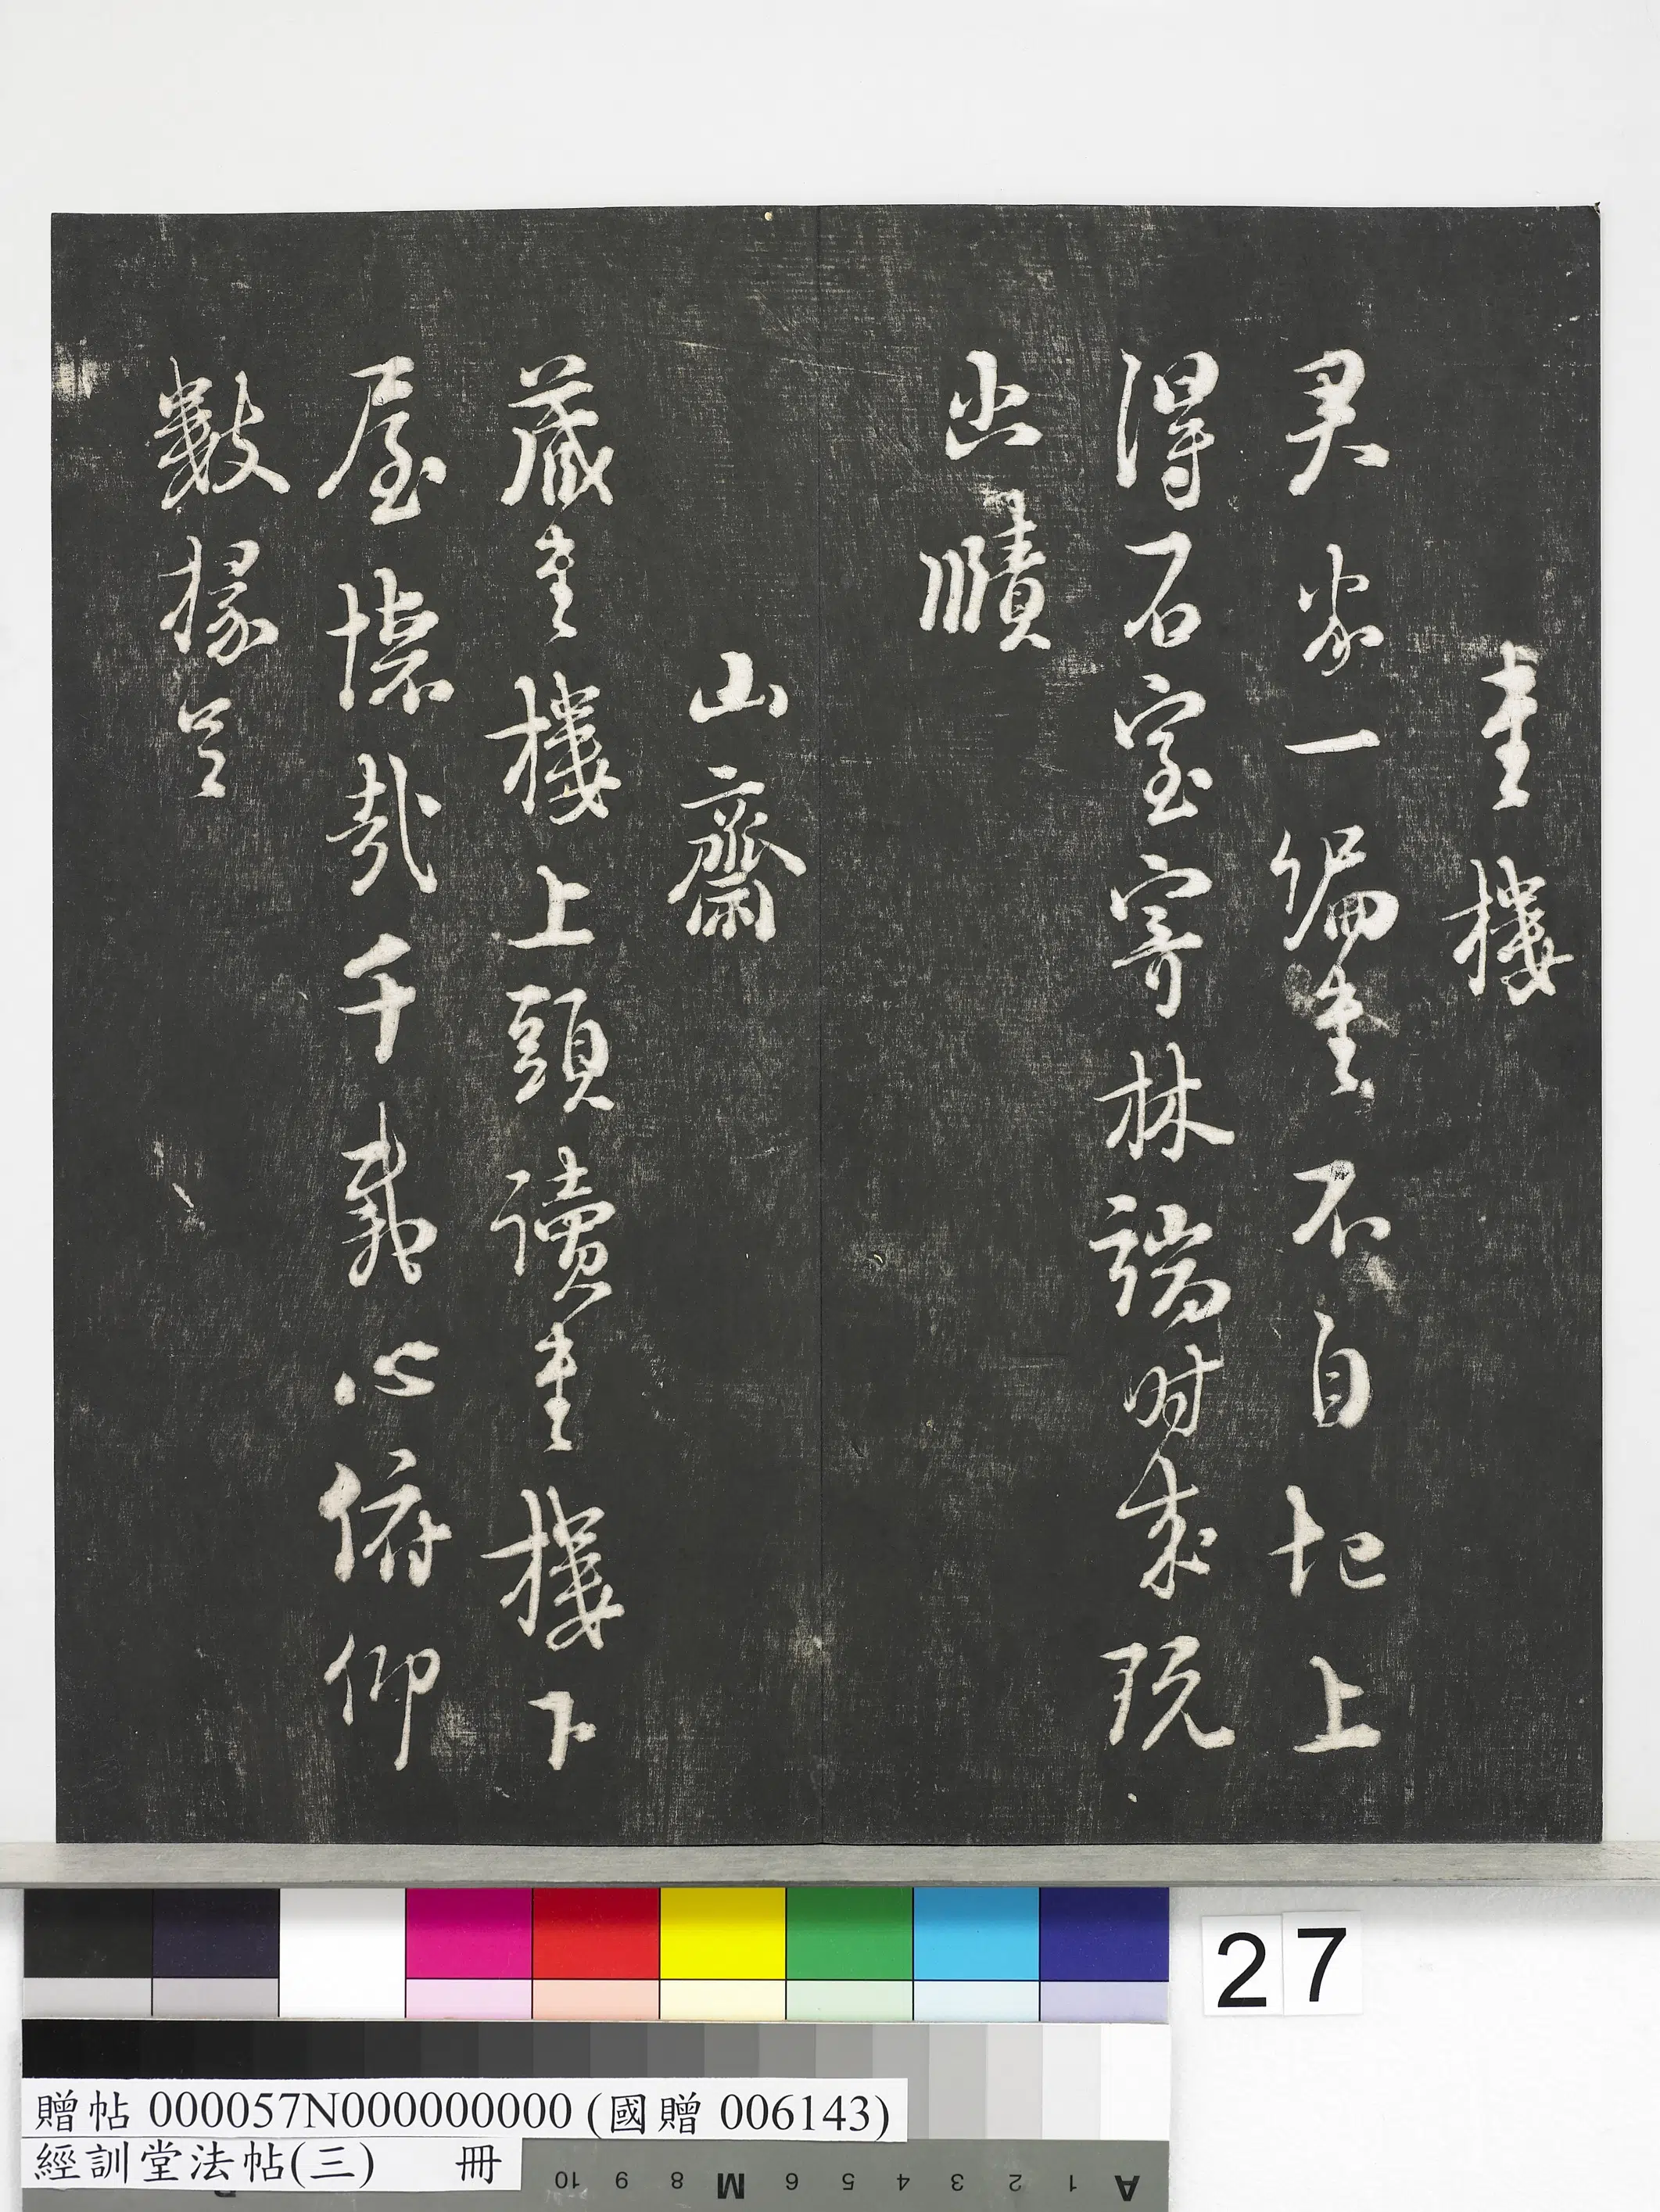 書樓
君家一編書不自圯上
得石室寄林端時來玩
幽賾
山齋
藏書樓上頭讀書樓下
屋懷哉千載心俯仰
數椽足
27
贈帖 000057N000000000 (國贈 006143)
經訓堂法帖(三) 冊
A 1 2 3 4 5 6 M 8 9 10